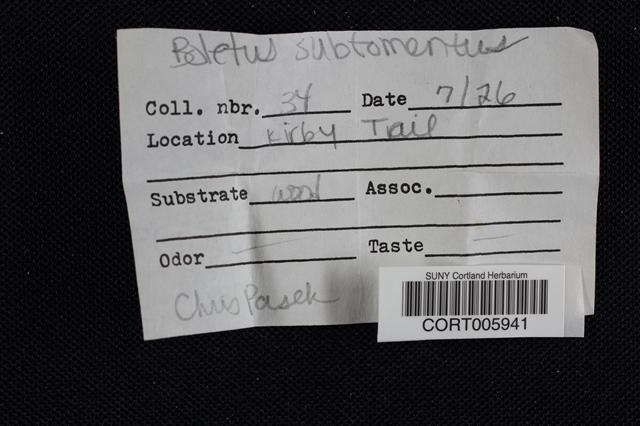 Boletus subtomentus
Coll. nbr. 34 Date 7/26
Location Kirby Trail
Substrate wood Assoc.
Odor — Taste —
Chris Pasek
SUNY Cortland Herbarium
CORT005941